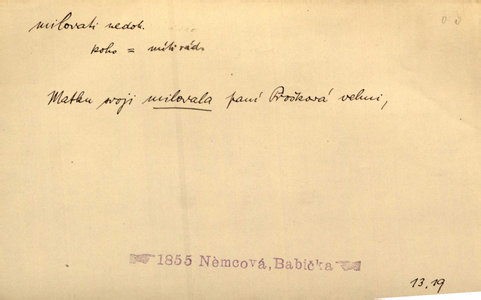 milovati nedok.
koho = míti rád.
Matku svoji milovala paní Prošková velmi,
1855 Němcová, Babička
13.19